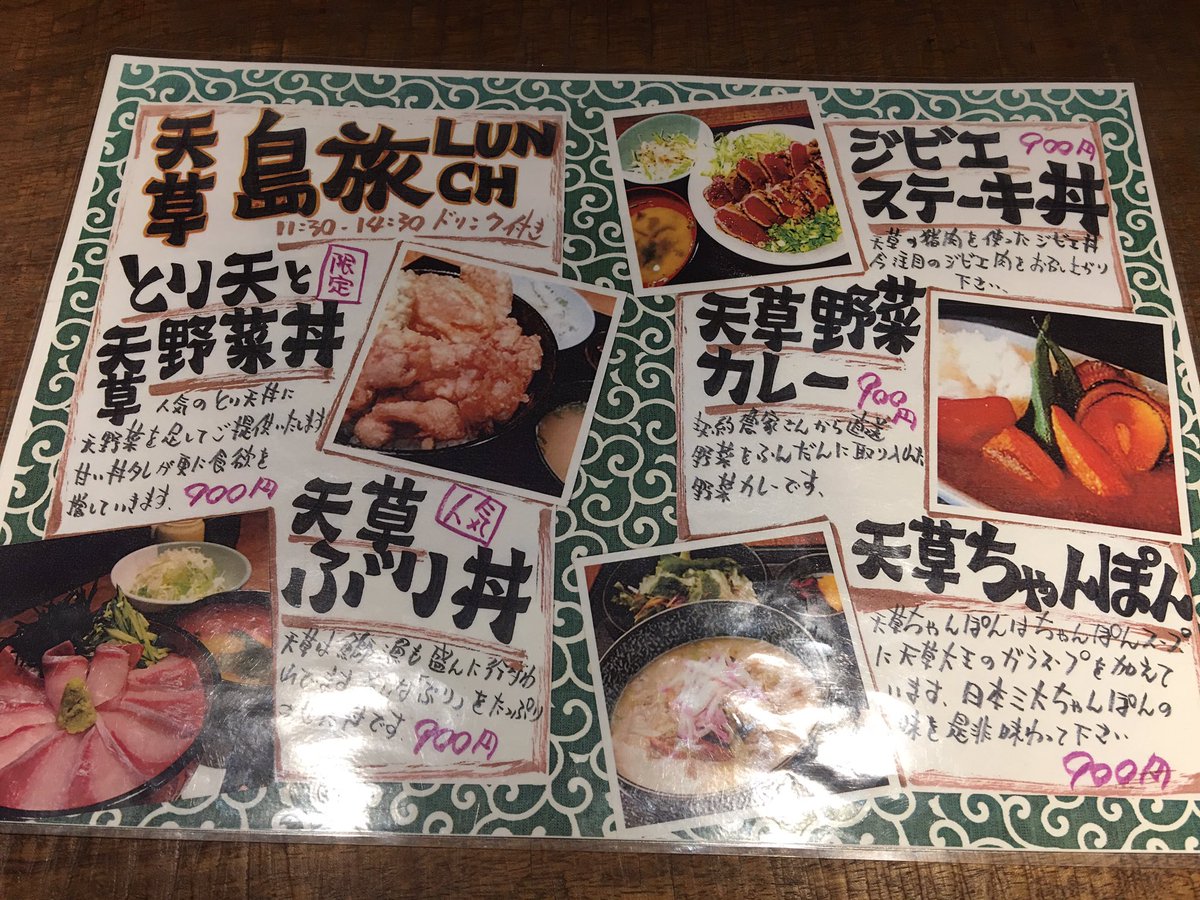 天草
島旅
LUNCH
11:30-14:30 ドリンク付き
とり天と
限定
天草野菜丼
人気のとり天丼に
天野菜を足してご提供いたします
甘い丼タレが更に食欲を
増していきます、
900円
天草
人気
ぶり丼
をたっぷり
丼です
900円
ジビエ
900円
ステーキ丼
天草の猪肉を使ったジビエ丼
今注目のジビエ肉をお召し上がり
下さい、
天草野菜
カレー
900円
契約農家さんから直送
野菜をふんだんに取り入れた
野菜カレーです、
天草ちゃんぽん
天草ちゃんぽんはちゃんぽんスープ
に天草大王のガラスープを加えて
います、日本三大ちゃんぽんの
味を是非味わって下さい
900円